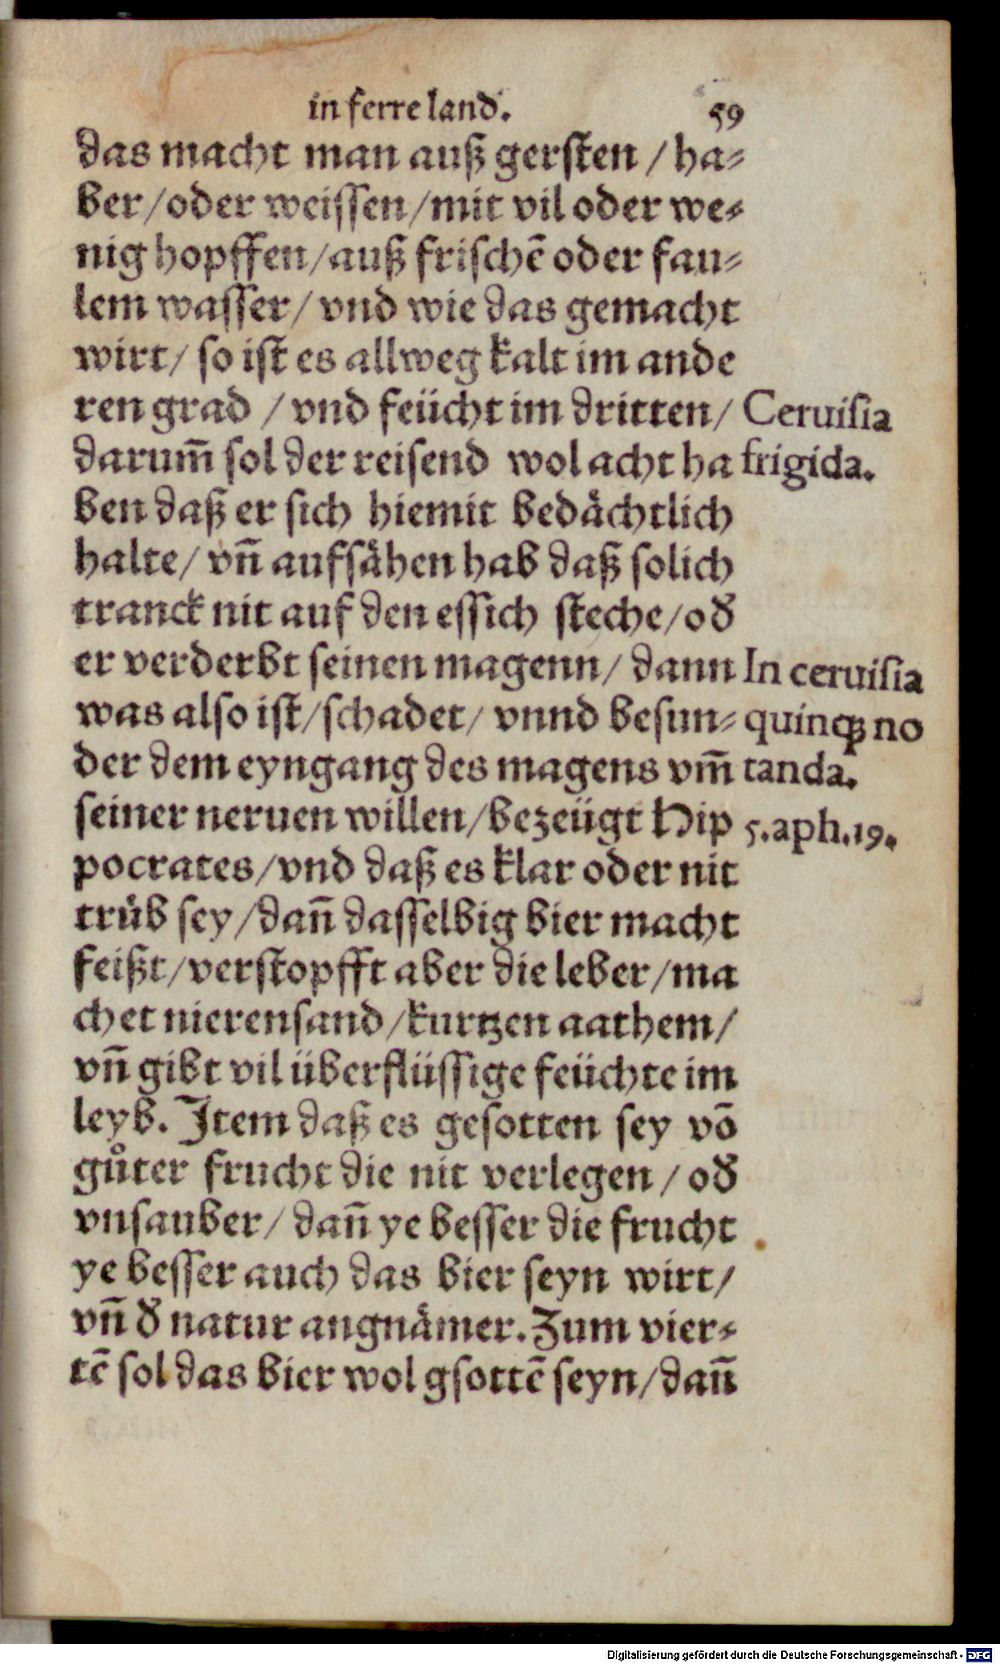 in ferre land. 59
das macht man auß gersten / ha⸗
ber/oder weissen/mit vil oder we⸗
nig hopffen/auß frischē oder fau⸗
lem wasser/ vnd wie das gemacht
wirt/ so ist es allweg kalt im ande
ren grad / vnd feücht im dritten/
Ceruisia
darum̄ sol der reisend wol acht ha
frigida.
ben daß er sich hiemit bedächtlich
halte/ vn̄ aufsähen hab daß solich
tranck nit auf den essich steche/od
er verderbt seinen magenn/ dann
In ceruisia
was also ist/schadet/ vnnd besun⸗
quinqꝫ no
der dem eyngang des magens vm̄
tanda.
seiner neruen willen/bezeügt Hip
5.aph.19.
pocrates/vnd daß es klar oder nit
trüb sey/dan̄ dasselbig bier macht
feißt/verstopfft aber die leber/ma
chet nierensand/kurtzen aathem/
vn̄ gibt vil überflüssige feüchte im
leyb. Item daß es gesotten sey vō
gůter frucht die nit verlegen / od
vnsauber/ dan̄ ye besser die frucht
ye besser auch das bier seyn wirt/
vn̄ d natur angnämer. Zum vier⸗
tē sol das bier wol gsottē seyn/dan̄
Digitalisierung gefördert durch die Deutsche Forschungsgemeinschaft - DFG